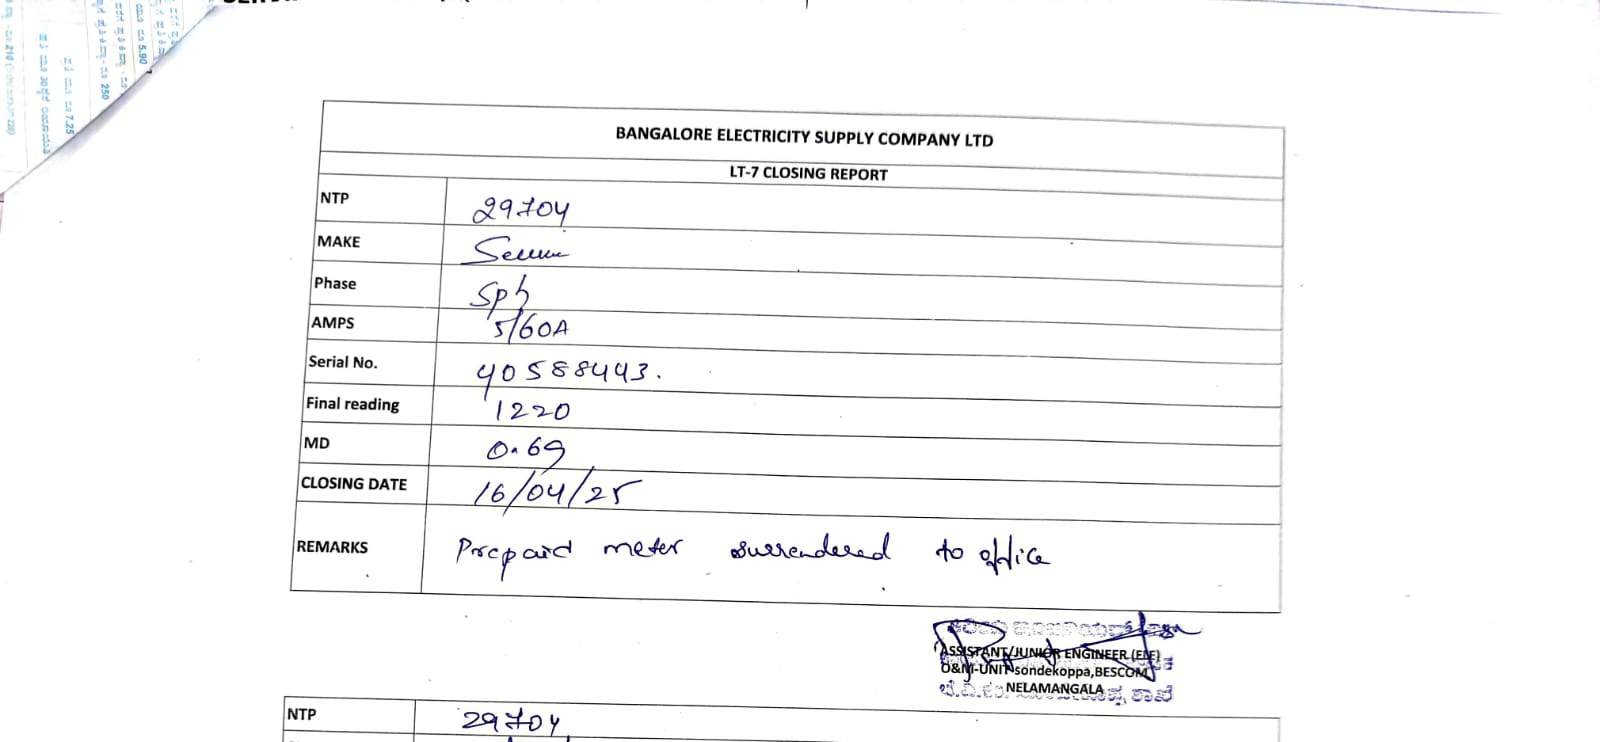 ರೂ 5.90
ರೂ 250
ರೂ 7.25
ರೂ 210
BANGALORE ELECTRICITY SUPPLY COMPANY LTD
LT-7 CLOSING REPORT
NTP 29704
MAKE Secure
Phase Sph
AMPS 5/60A
Serial No. 40588443.
Final reading 1220
MD 0.69
CLOSING DATE 16/04/25
REMARKS Prepaid meter surrendered to office
ASSISTANT/JUNIOR ENGINEER (ELE)
O&M-UNIT sondekoppa,BESCOM
NELAMANGALA
NTP 29704